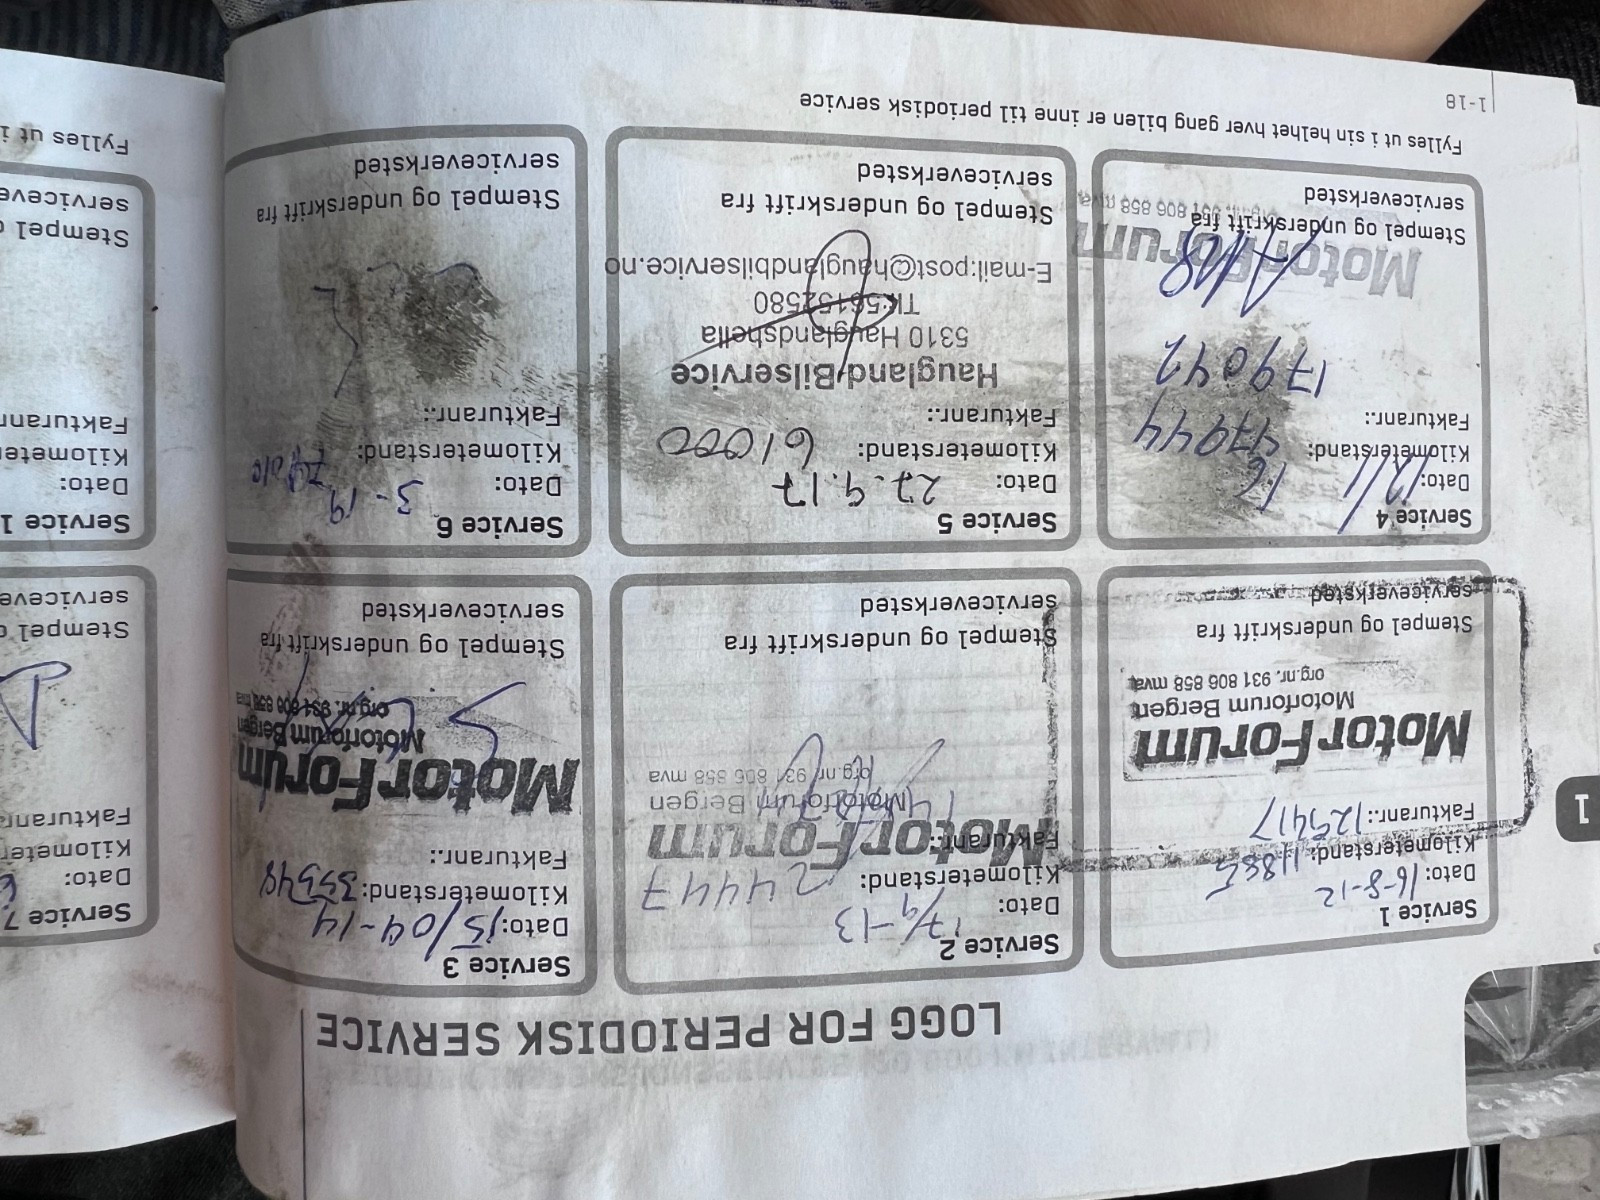 LOGG FOR PERIODISK SERVICE
Service 1
Dato: 16-8-12
Kilometerstand: 11885
Fakturanr.: 125417
MotorForum
Motorforum Bergen
org.nr. 931 806 858 mva
Stempel og underskrift fra
serviceverksted
Service 2
Dato: 17/9-13
Kilometerstand: 24447
Fakturanr.:
MotorForum
Motorforum Bergen
org.nr. 931 806 858 mva
Stempel og underskrift fra
serviceverksted
Service 3
Dato: 15/04-14
Kilometerstand:
Fakturanr.:
MotorForum
Motorforum Bergen
org.nr. 931 806 858 mva
Stempel og underskrift fra
serviceverksted
Service 4
Dato: 12/1 16
Kilometerstand: 47944
Fakturanr.:
179042
MotorForum
org.nr. 931 806 858 mva
Stempel og underskrift fra
serviceverksted
Service 5
Dato: 27.9.17
Kilometerstand: 61000
Fakturanr.:
Haugland Bilservice
5310 Hauglandshella
Tlf:56152580
E-mail:post@hauglandbilservice.no
Stempel og underskrift fra
serviceverksted
Service 6
Dato: 3-19
Kilometerstand:
Fakturanr.:
Stempel og underskrift fra
serviceverksted
Fylles ut i sin helhet hver gang bilen er inne til periodisk service
1-18
1
Service 7
Dato:
Kilometer
Fakturanr
Stempel o
serviceve
Service 1
Dato:
Kilometer
Fakturanr
Stempel o
serviceve
Fylles ut i